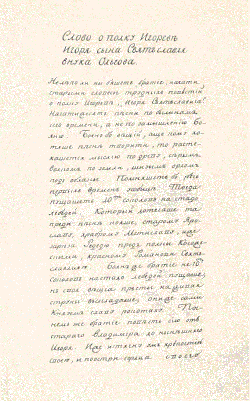 Слово о полку Игоревѣ
Игоря сына Святъславля
внука Ольгова.
Нелѣполи ны бяшетъ братіе, начати
старыми словесы трудныхъ повѣстій
о полку Игоревѣ, Игоря Святъславича!
Начатижеся пѣсни по былинамъ
сего времени, а не по замышленію Бо-
яню. Боянъ бо вѣщій, аще кому хо-
тяше пѣснь творити, то расте-
кашется мыслію по древу, сѣрымъ
волкомъ по земли, шизымъ орломъ
подъ облакы. Помняшетъ бо рѣчь
первыхъ временъ усобицѣ. Тогда
пущашетъ 10ть соколовъ на стадо
лебедей. Который дотечаше та
преди пѣснь пояше, старому Яро-
славу, храброму Мстиславу, иже
зарѣза Редедю предъ полкы Касож-
скими, красному Романови Свято-
славличу. Боянъ же братіе не 10
соколовъ на стадо лебедей пущаше,
нъ своя вѣщіа пръсты на живая
струны въскладаше, они же сами
Княземъ славу рокотаху. Поч-
немъ же братіе повѣсть сію отъ
стараго Владимера до нынѣшняго
Игоря. Иже истягну умъ крѣпостію
своею, и поостри сердца своего